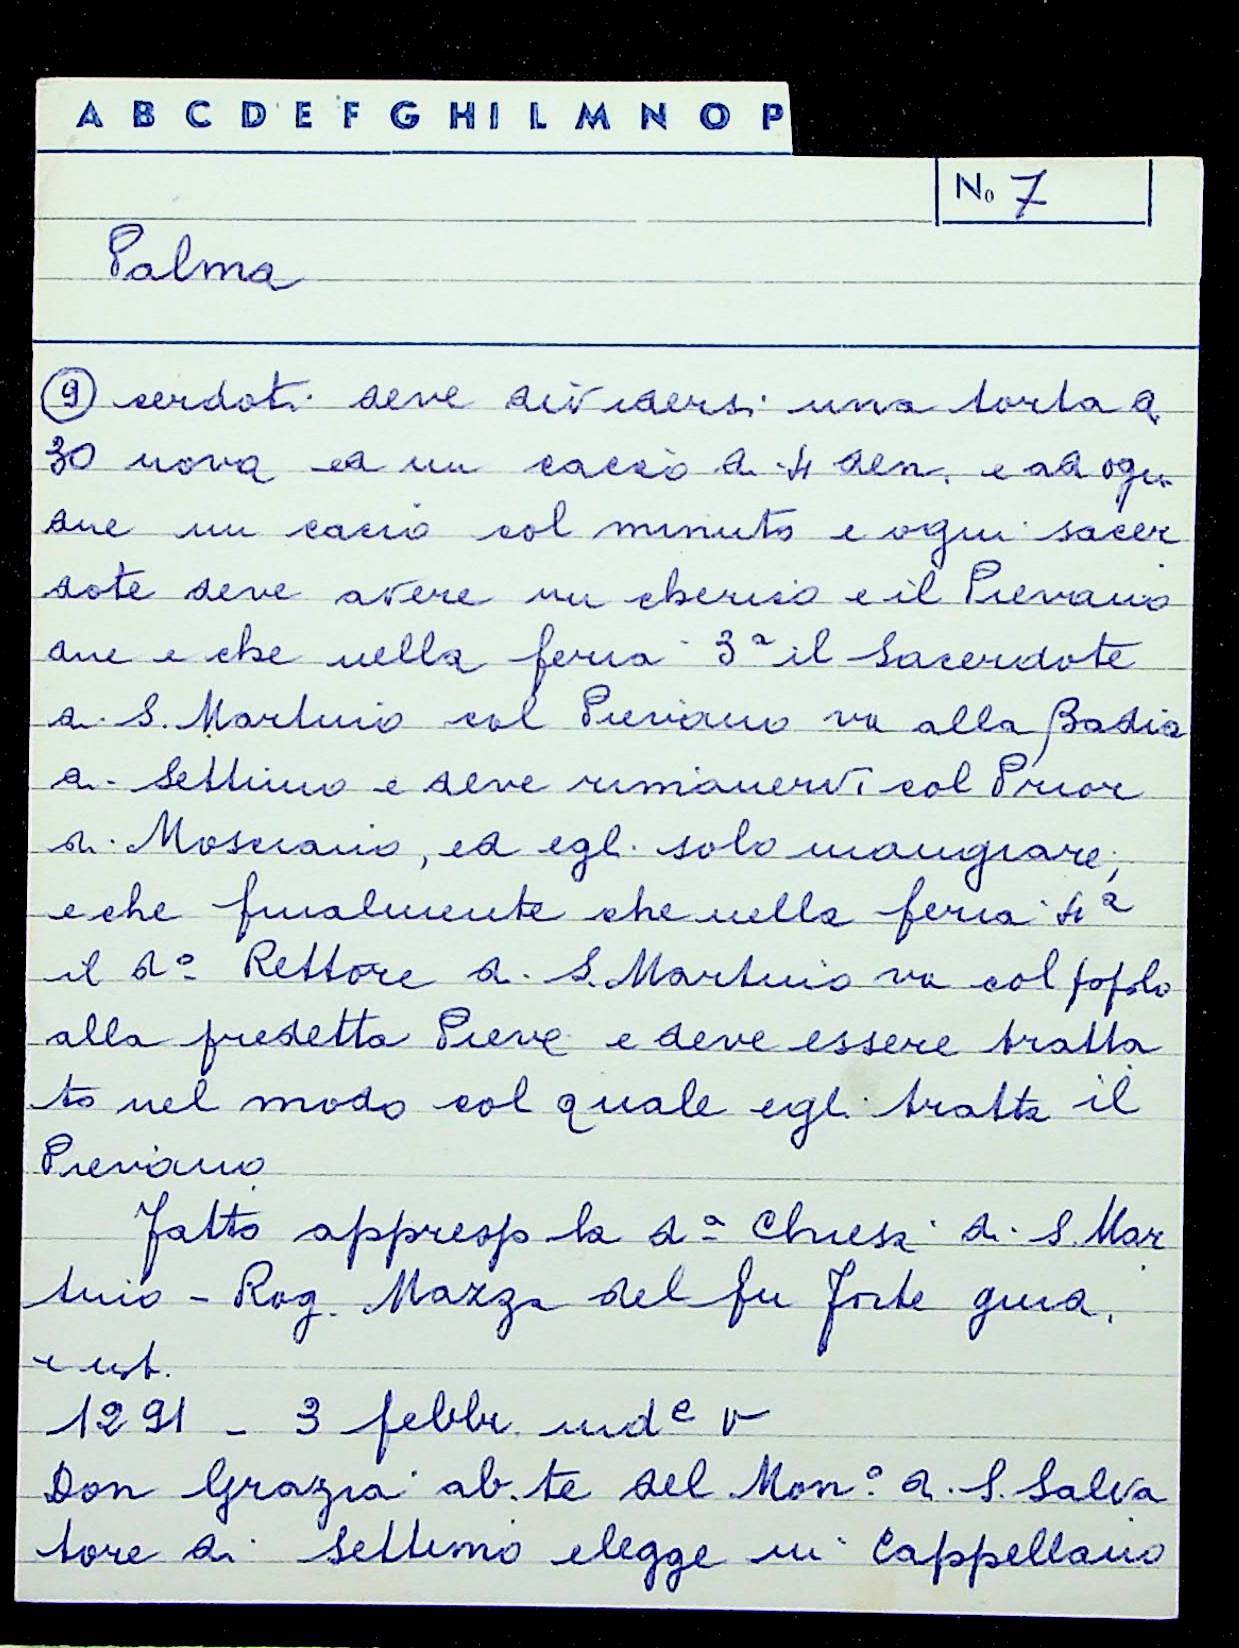 A B C D E F G H I L M N O P
No 7
Palma
9 cerdoti deve dividersi una torta di
30 uova ed un cacio di 4 den. e ad ogn.
due un cacio col minuto e ogni sacer
dote deve avere un cherico e il Pievano
due e che nella feria 3ª il Sacerdote
di S. Martino col Pievano va alla Badia
a Settimo e deve rimanervi col Prior
di Mosciano, ed egli solo mangiare;
e che finalmente che nella feria 4ª
il dº Rettore di S. Martino va col popolo
alla predetta Pieve e deve essere tratta
to nel modo col quale egli tratta il
Pievano
Fatto appresso la dª Chiesa di S. Mar
tino - Rog. Mazza del fu Forte giud.
e not.
1291 - 3 febbr. indᵉ V
Don Grazia ab.te del Mon.º di S. Salva
tore di Settimo elegge in Cappellano